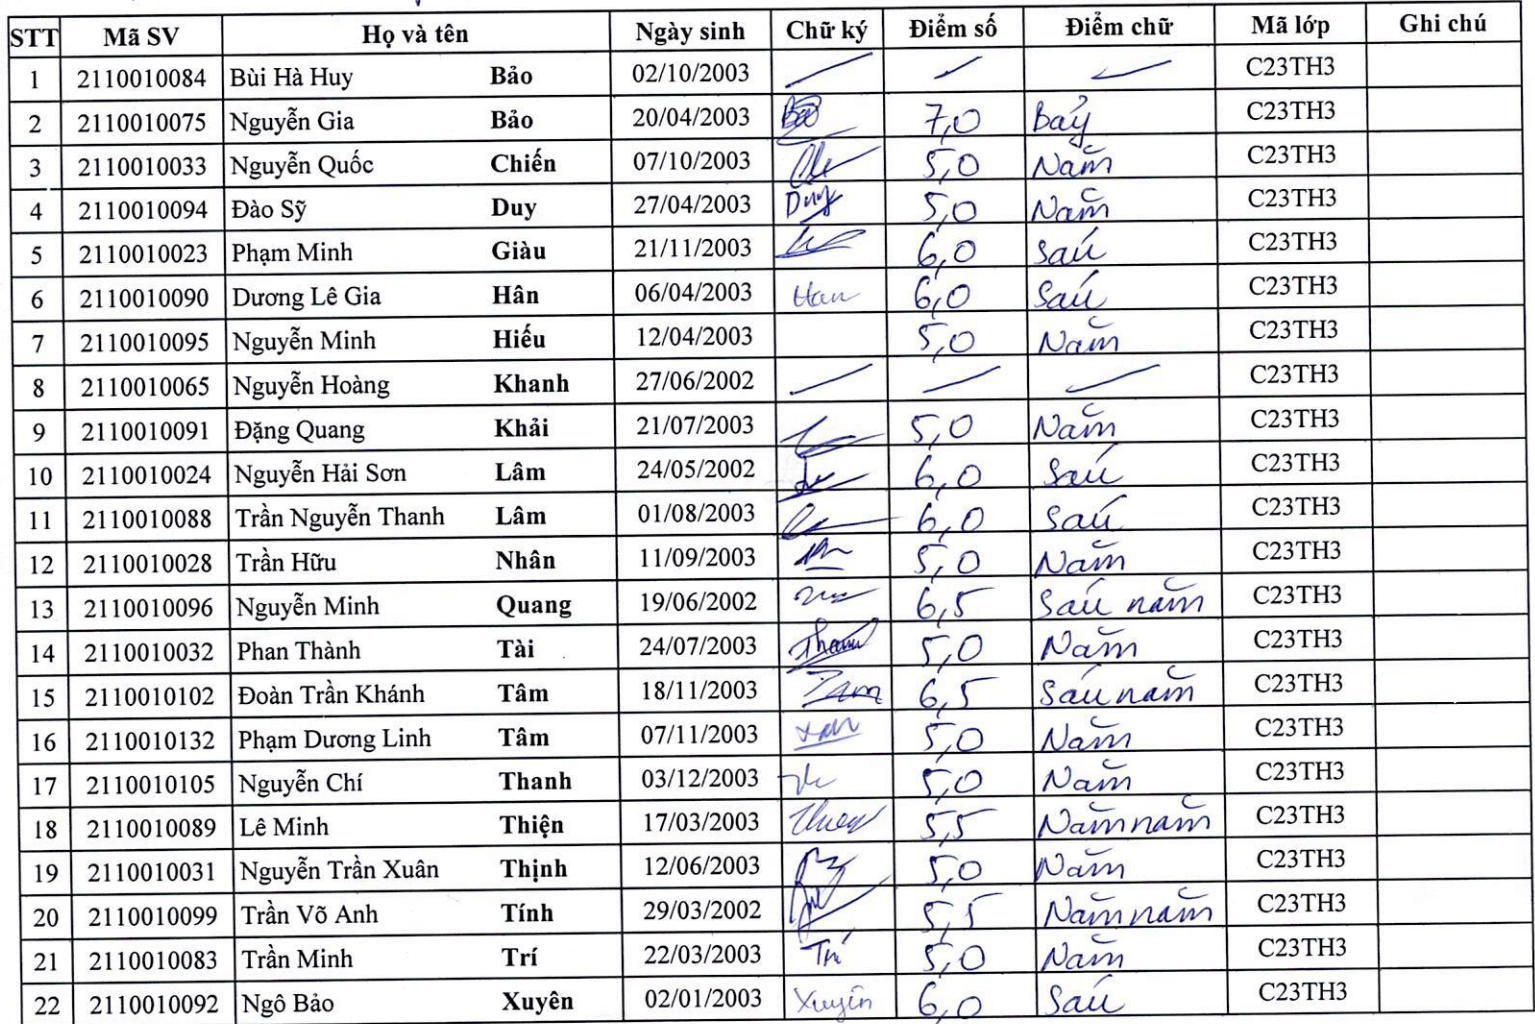 STT Mã SV Họ và tên Ngày sinh Chữ ký Điểm số Điểm chữ Mã lớp Ghi chú
1 2110010084 Bùi Hà Huy Bảo 02/10/2003 C23TH3
2 2110010075 Nguyễn Gia Bảo 20/04/2003 7,0 Bảy C23TH3
3 2110010033 Nguyễn Quốc Chiến 07/10/2003 5,0 Năm C23TH3
4 2110010094 Đào Sỹ Duy 27/04/2003 Duy 5,0 Năm C23TH3
5 2110010023 Phạm Minh Giàu 21/11/2003 6,0 Sáu C23TH3
6 2110010090 Dương Lê Gia Hân 06/04/2003 Han 6,0 Sáu C23TH3
7 2110010095 Nguyễn Minh Hiếu 12/04/2003 5,0 Năm C23TH3
8 2110010065 Nguyễn Hoàng Khanh 27/06/2002 C23TH3
9 2110010091 Đặng Quang Khải 21/07/2003 5,0 Năm C23TH3
10 2110010024 Nguyễn Hải Sơn Lâm 24/05/2002 6,0 Sáu C23TH3
11 2110010088 Trần Nguyễn Thanh Lâm 01/08/2003 6,0 Sáu C23TH3
12 2110010028 Trần Hữu Nhân 11/09/2003 5,0 Năm C23TH3
13 2110010096 Nguyễn Minh Quang 19/06/2002 6,5 Sáu năm C23TH3
14 2110010032 Phan Thành Tài 24/07/2003 5,0 Năm C23TH3
15 2110010102 Đoàn Trần Khánh Tâm 18/11/2003 Tam 6,5 Sáu năm C23TH3
16 2110010132 Phạm Dương Linh Tâm 07/11/2003 5,0 Năm C23TH3
17 2110010105 Nguyễn Chí Thanh 03/12/2003 5,0 Năm C23TH3
18 2110010089 Lê Minh Thiện 17/03/2003 5,5 Năm năm C23TH3
19 2110010031 Nguyễn Trần Xuân Thịnh 12/06/2003 5,0 Năm C23TH3
20 2110010099 Trần Võ Anh Tính 29/03/2002 5,5 Năm năm C23TH3
21 2110010083 Trần Minh Trí 22/03/2003 Trí 5,0 Năm C23TH3
22 2110010092 Ngô Bảo Xuyên 02/01/2003 Xuyên 6,0 Sáu C23TH3